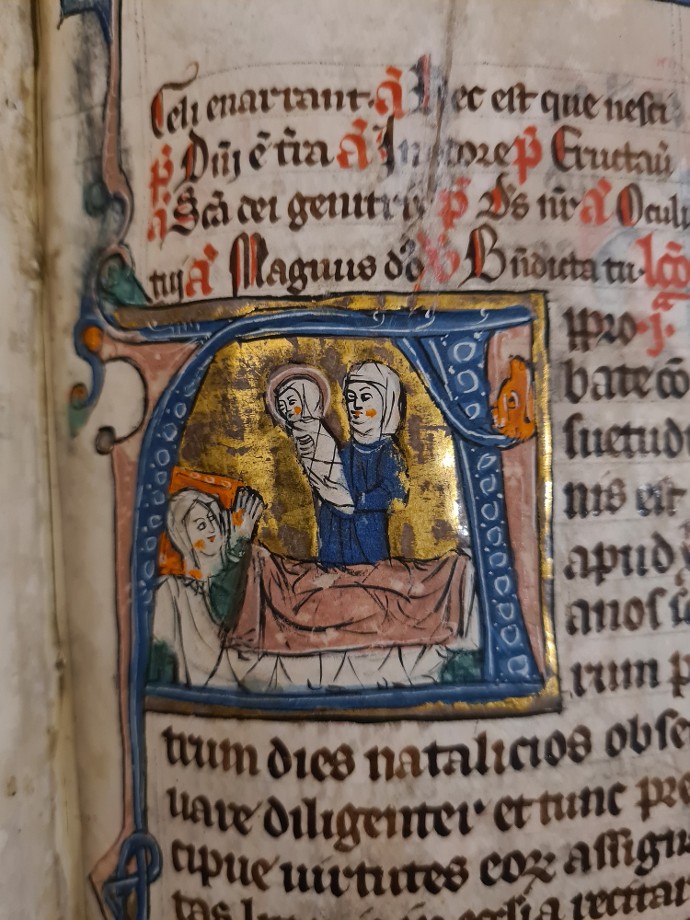 Celi enarrant. a᷑ Hec est que nesci
p᷑ Dn̄i ē t̄ra a᷑ In p᷑ Eructau̅
a᷑ Sc̄a dei genitrix p᷑ Ds nr̄ a᷑ Oculi
tui a᷑ Magnus dn̄s Bn̄dicta tu. lc̄o
Appro j.
bate cō
suetudi
nis est
apud
rum p
trum dies natalicios obse
uare diligenter et tunc pre
cipue uirtutes eoꝝ assigna
tas recitar